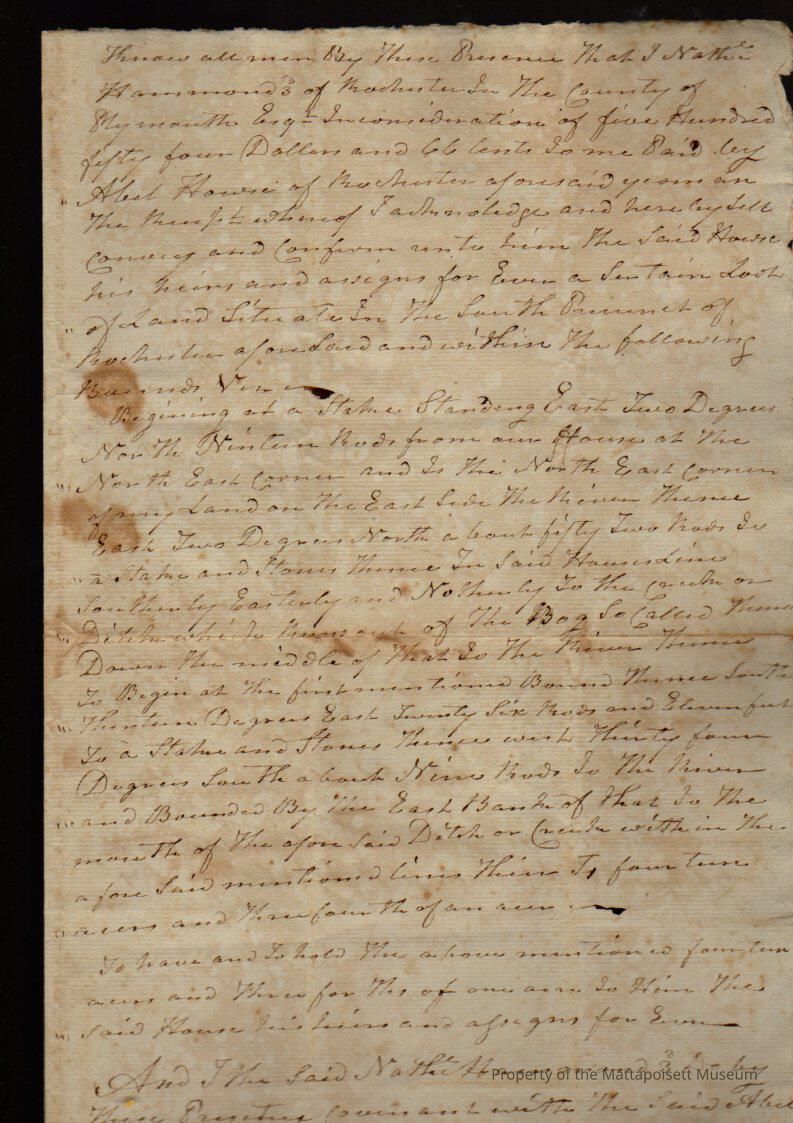 Know all men By These Presence That I Nathll
Hammond 3d of Rochester In The County of
Plymouth Esqr Inconsideration of five Hundred
fifty four Dollers and 66 Cents To me Paid by
Abel Howse of Rochester aforesaid yeoman
The Receipt whereof I acknoledge and hereby Sell
convey and Confirm unto him The Said Howse
his heirs and assigns for Ever a Sertain Loot
of Land Situate In The South Precinct of
Rochester aforesaid and within The following
Bounds
Begining at a Stake Standing East Two Degrees
North Ninteen Rods from our House at The
North East Corner and Is The North East Corner
of my Land on The East Side The River Thence
East Two Degrees North about fifty Two Rods To
a Stake and Stones Thence In Said Howses Line
Southerly Easterly and Notherly To the Creek or
Ditch which Runs out of The Bog So Called Thence
Down The middle of That To The River Thence
To Begin at The first mentioned Bound Thence South
Thirteen Degrees East Twenty Six Rods and Eleven feet
To a Stake and Stones Thence west Thirty four
Degrees South about Nine Rods To The River
and Bounded By The East Bank of That To The
mouth of The afore Said Ditch or Creek within The
afore Said mentioned lines Their Is fourteen
acers and Three fourth of an acer
To have and To hold The above mentioned fourteen
acers and Three forths of one acre To Him The
Said Howse his heirs and assigns for Ever
And I The Said Nathll Hammond 3d by
These Presence Covenant with The Said Abel
Property of the Mattapoisett Museum